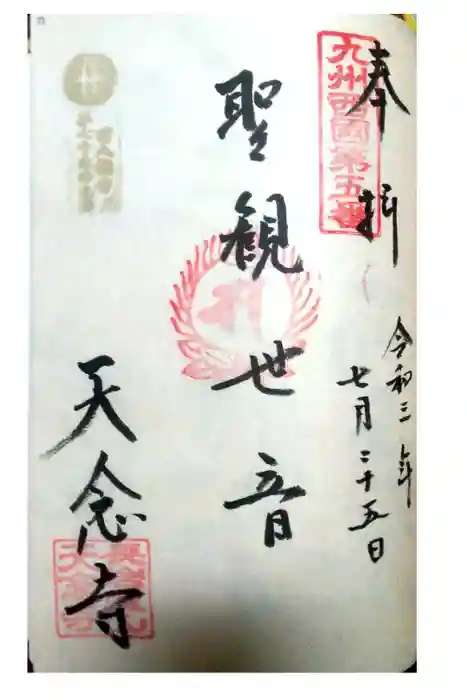 奉拝
九州西國第五番
令和三年
七月二十五日
聖観世音
天念寺